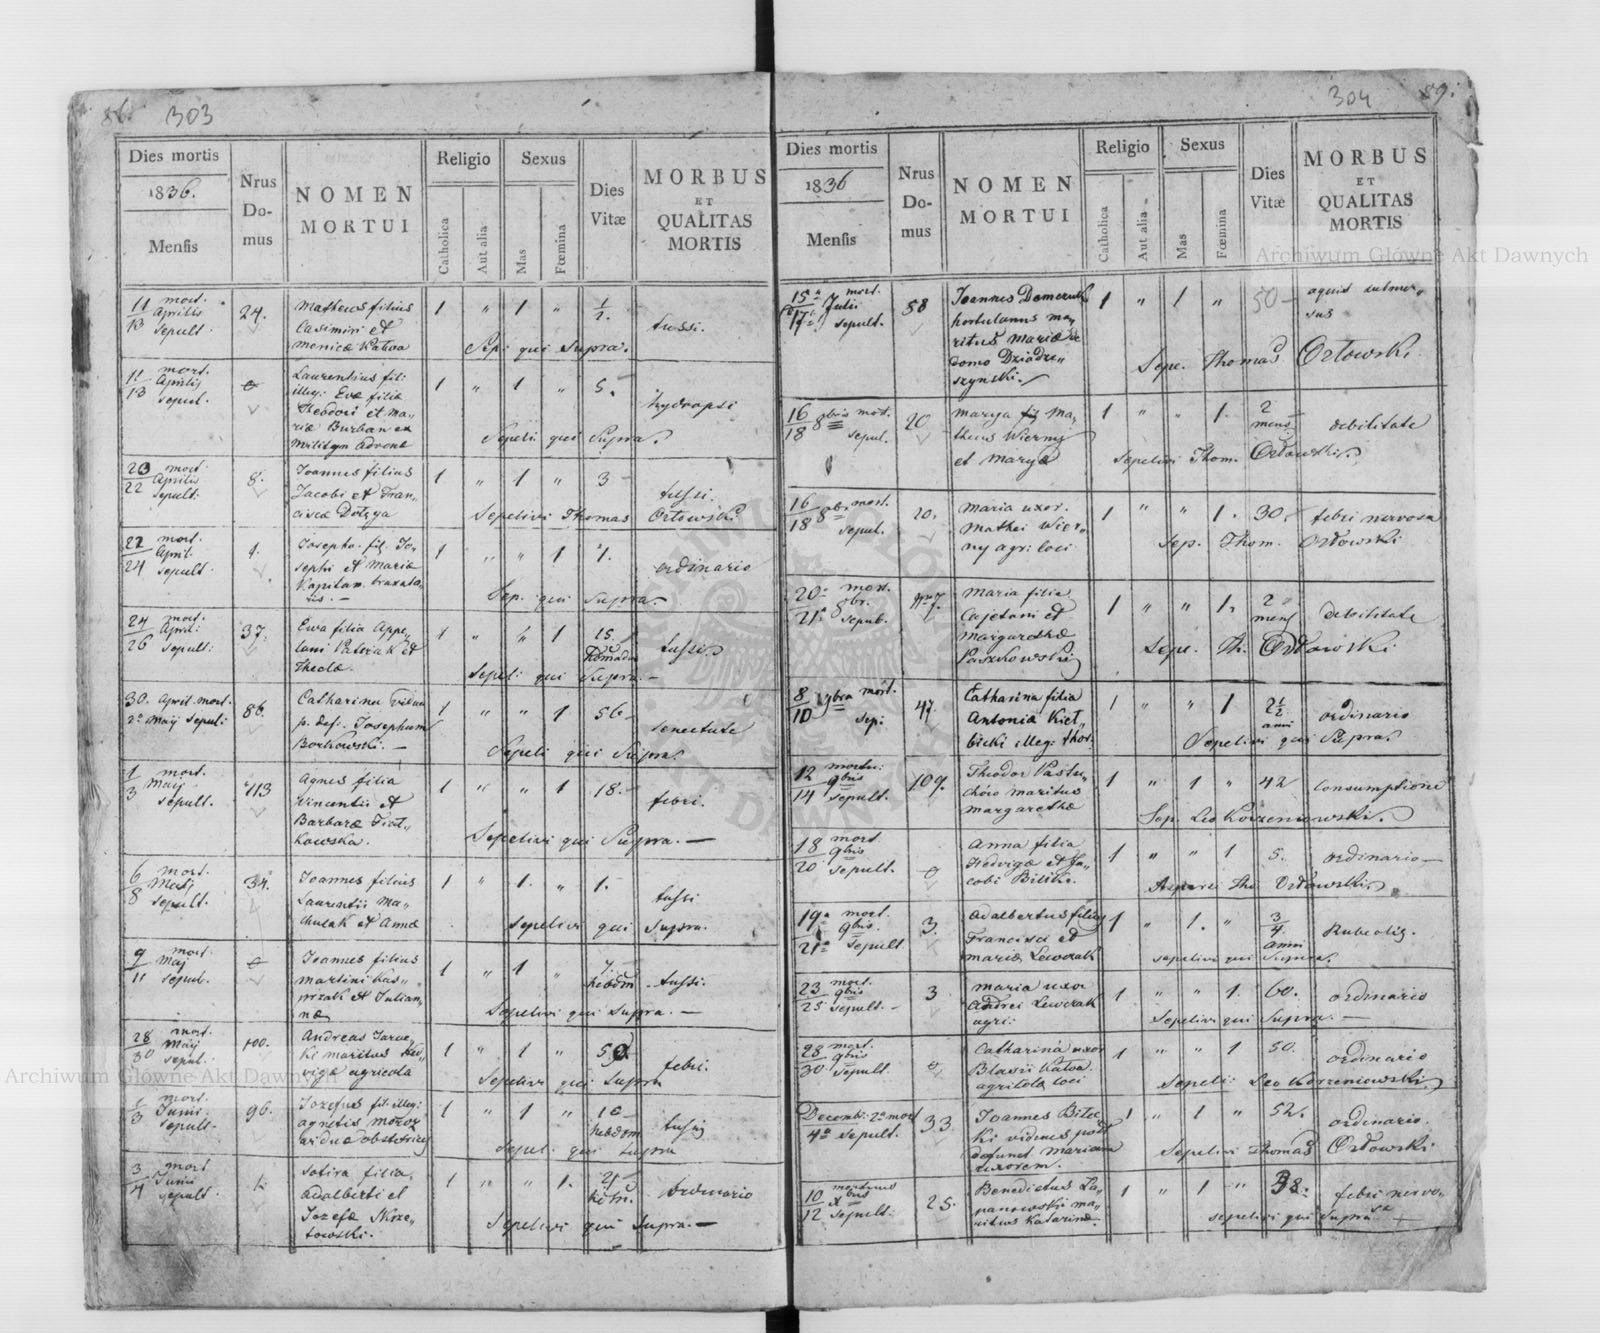 303
Dies mortis
1836.
Mensis
Nrus
Do-
mus
NOMEN
MORTUI
Religio
Catholica
Aut alia
Sexus
Mas
Fœmina
Dies
Vitæ
MORBUS
ET
QUALITAS
MORTIS
11 mort.
Aprilis
13 sepult.
24.
Matheus filius
Casimiri et
1 " 1 "
tussi.
Sepe qui Supra.
11 mort.
Aprilis
13 sepult.
Laurentius fil:
illeg: Evæ filiæ
Theodori et Ma„
riæ Burban ex
1 " 1 " 5.
hydropsi
Sepeli qui Supra.
20 mort.
Aprilis
22 Sepult.
8.
Joannes filius
Jacobi et Fran„
ciscæ Dołęga
1 " 1 " 3
tussi.
Sepelivi Thomas Orłowski
22 mort.
April.
24 sepult.
Josepha fil. Jo„
sephi et Mariæ
1 " " 1 1.
ordinario
Sep. qui Supra.
24 mort.
April:
26 sepult:
37.
Ewa filia
Theclæ.
1 " " 1 15.
tussi.
Sepeli qui Supra.
30. April mort.
2ª Maij sepul:
86.
Catharina vidua
p. def. Josephum
Borkowski.
1 " " 1 56
senectute
Sepeli qui Supra.
1 mort.
Maij
3 sepult.
113
Agnes filia
Vincentii et
Barbaræ Fiał„
kowska.
1 " " 1 18.
febri.
Sepelivi qui Supra.
6 mort.
Maij
8 sepult.
34.
Joannes filius
Laurentii Ma„
chulak et Annæ
1 " 1. " 1.
tussi
Sepelivi qui Supra.
9 mort.
Maj
11 sepul.
Joannes filius
Martini Kas„
przak et Julian„
næ
1 " 1 " 7.
hebdom
tussi.
Sepelivi qui Supra.
28 mort.
Maij
30 sepul.
100.
Andreas
ki maritus Hed„
vigæ agricola
1 " 1 "
febri.
Sepelivi qui Supra
1 mort.
Junii.
3 sepult.
96.
Josefus fil: illeg:
Agnetis
viduæ obstetricis
1 " 1 " 10
hebdom
tussis
Sepel. qui Supra
3 mort
Junii
4 sepult
Sofira filia
Adalberti et
Jozefæ Skrze„
towski.
1 " " 1.
ordinario
Sepelivi qui Supra.
304
89.
Dies mortis
1836
Mensis
Nrus
Do-
mus
NOMEN
MORTUI
Religio
Catholica
Aut alia
Sexus
Mas
Fœmina
Dies
Vitæ
MORBUS
ET
QUALITAS
MORTIS
15ª mort.
Julii
17ª sepult.
58
Joannes
hortulanus ma„
ritus Mariæ de
domo Dziadze„
szynski.
1 " 1 " 50
aquis submer„
sus
Sepe. Thomas Orłowski
16 8bris mort.
18 sepul.
20
Marya fil Ma„
theus Wierny
et Marya
1 " " 1. 2
mens
debilitate
Sepelivi Thom. Orłowski.
16 8bri mort.
18 sepul.
20.
Maria uxor.
Mathei Wier„
ny agri: loci
1 " " 1. 30.
febri nervosa
Sep. Thom. Orłowski
20ª mort.
8br.
21ª sepub.
Maria filia
Cajetani et
Margarethæ
Paszkowski
1 " " 1. 2
mens
debilitate
Sepe. Th. Orłowski
8 9bra mort.
10 sep:
47
Catharina filia
Antoniæ Kieł„
bicki illeg: thor.
1 " " 1 2½
anni
ordinario
Sepelivi qui Supra.
12 mortu:
9bris
14 sepult.
109.
Theodor Pastu„
maritus
Margarethæ
1 " 1 " 42
Consumptione
Sep. Leo Korzeniowski.
18 mort
9bris
20 sepult.
Anna filia
Hedvigæ et Ja„
cobi Bilski.
1 " " 1 5.
ordinario
Th. Orłowski.
19ª mort.
9bris.
21ª sepult
3.
Adalbertus filius
Francisci et
Mariæ Lewczak
1 " 1. " 3/4
anni
Rubeolis.
sepelivi qui Supra.
23 mort.
9bris
25 sepult.
3
Maria uxor
Andrei Lewczak
agri:
1 " " 1. 60.
ordinario
Sepelivi qui Supra.
28 mort.
9bris
30 sepult.
Catharina uxor
Blasii Katva
agricola loci
1 " " 1 50.
ordinario
Sepeli: Leo Korzeniowski
Decemb: 2ª mort
4ª sepult.
33
Joannes Bilec„
ki viduus post
defunct Mariam
uxorem.
1 " 1 " 52.
ordinario.
Sepelivi Thomas Orłowski
10 mortuus
Xbris
12 sepult:
25.
Benedictus La„
panowski ma„
ritus Katarinæ
1 " 1 " 38.
febri nervo„
sa
sepelivi qui Supra
Archiwum Główne Akt Dawnych
Archiwum Główne Akt Dawnych